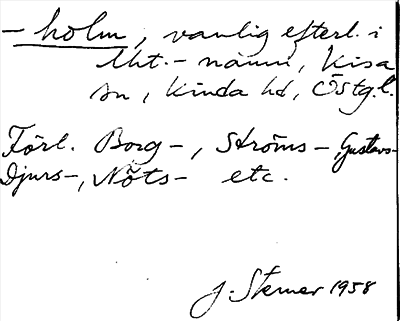 - holm, vanlig efterl. i
lht.-namn, Kisa
sn, Kinda hd, Östg.l.
Förl. Borg-, Ströms-, Gustavs-
Djurs-, Nöts- etc.
J. Sterner 1958